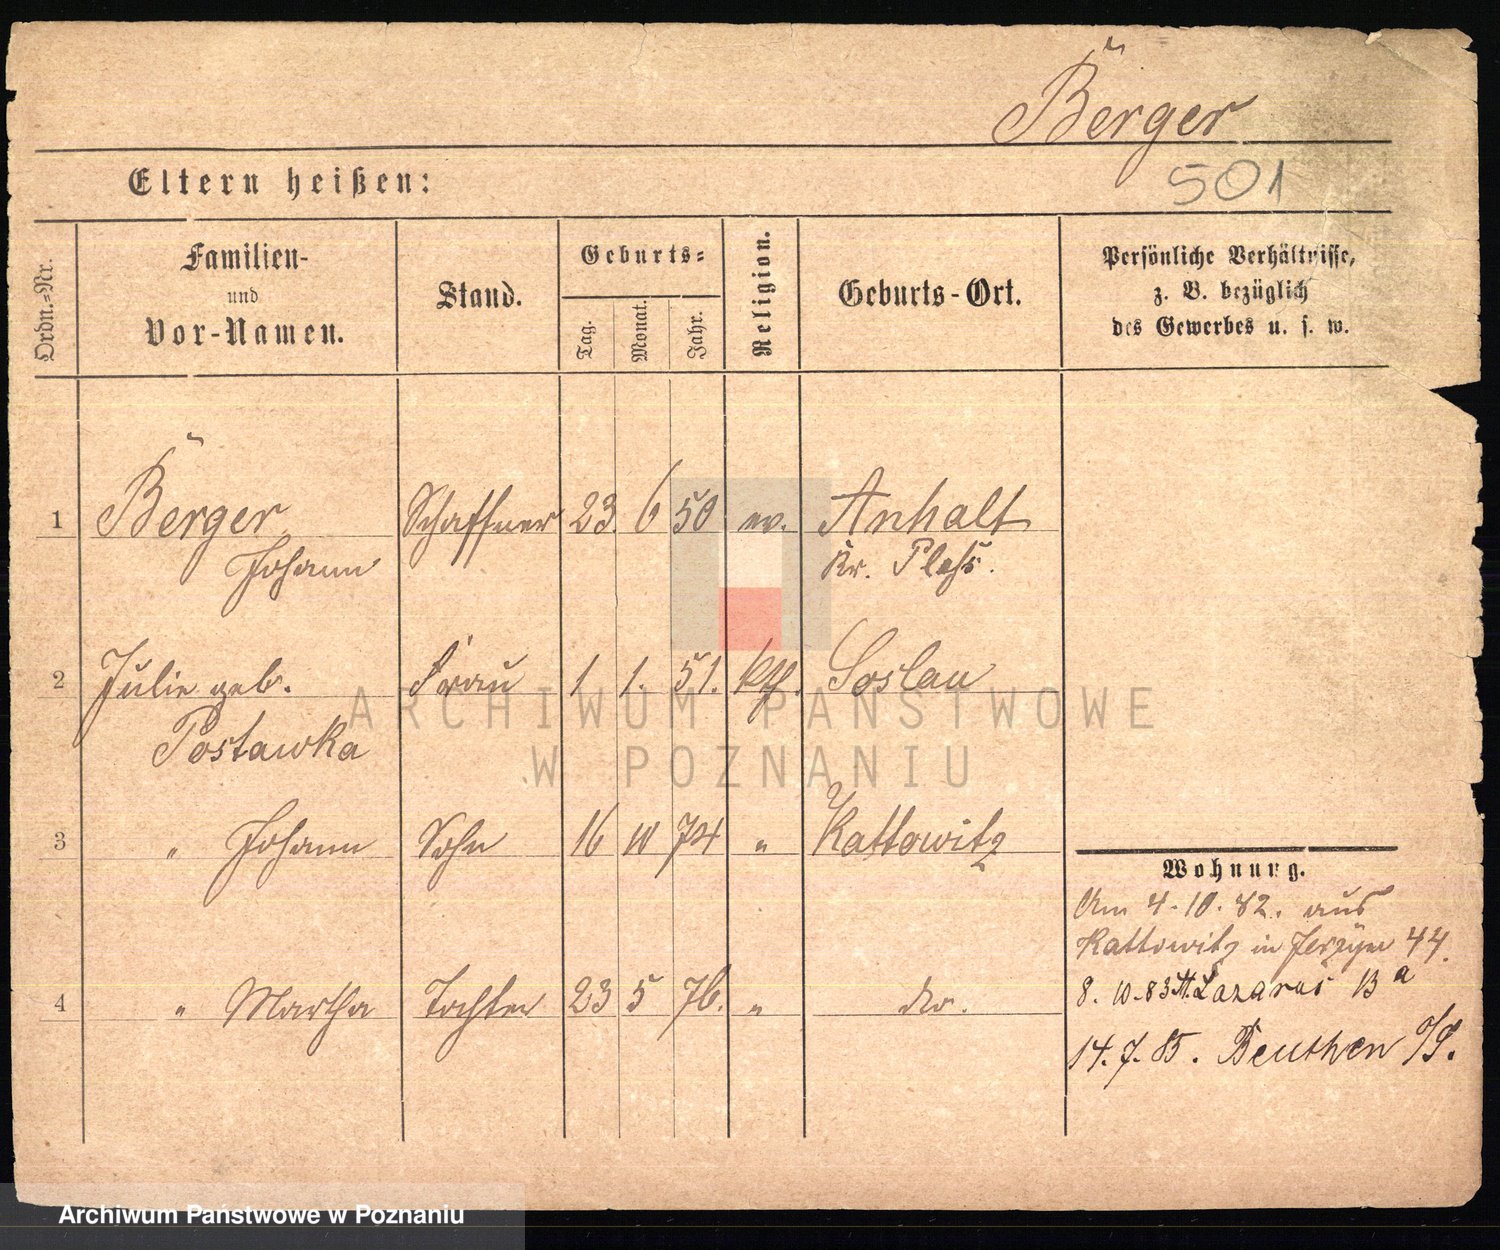 Berger
501
Eltern heißen:
Ordn.-Nr.
Familien-
und
Vor-Namen.
Stand.
Geburts-
Tag.
Monat.
Jahr.
Religion.
Geburts-Ort.
Persönliche Verhältnisse,
z. B. bezüglich
des Gewerbes u. s. w.
1 Berger Schaffner 23 6 50 ev. Anhalt
Johann Kr. Pleß.
2 Julie geb. Frau 1 1. 51. kth. Loslau
Postawka
3 " Johann Sohn 16 10 74 " Kattowitz
4 " Martha Tochter 23 5 76. " do.
Wohnung.
Am 4.10.82. aus
Kattowitz in Jerzyce 44.
8.10.83 St. Lazarus 13a
14.7.85. Beuthen O/S.
ARCHIWUM PAŃSTWOWE
W POZNANIU
Archiwum Państwowe w Poznaniu